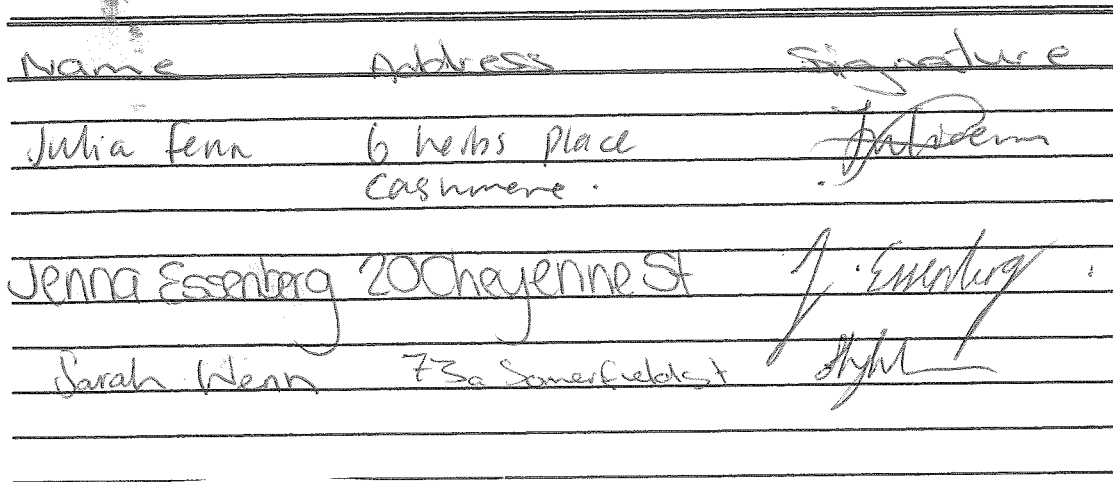 Name Address Signature
Julia Fenn 6 herbs place
Cashmere.
Jenna Essenberg 20 Cheyenne St J. Essenberg
Sarah Wenn 73a Somerfield st